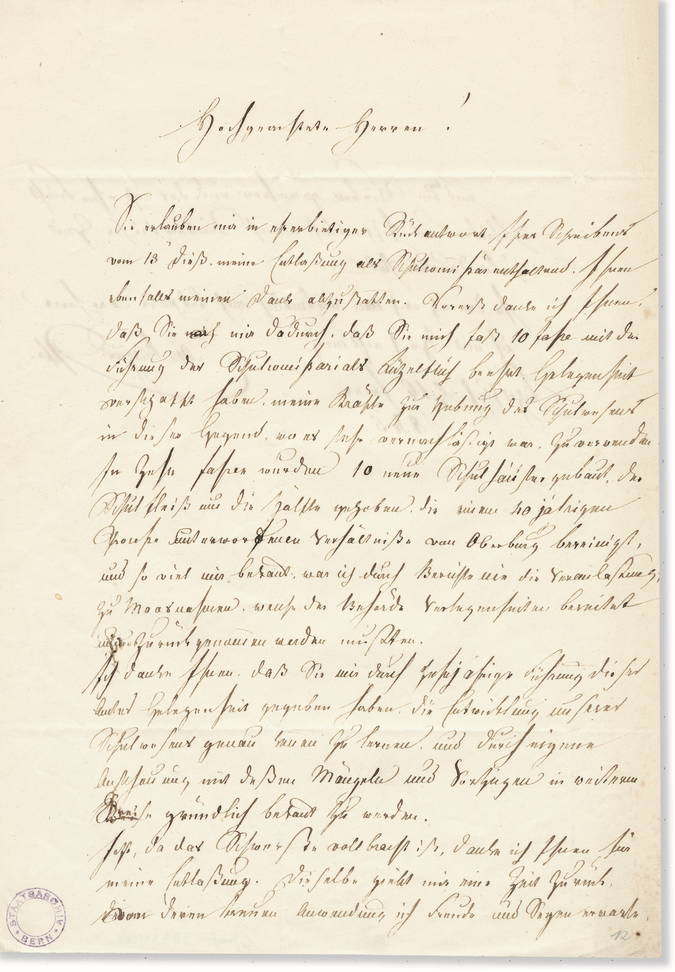 Hochgeachtete Herren!
Sie erlauben mir in ehrerbietiger Rückantwort Ihres Schreibens
vom 13 dieß, meine Entlaßung als Schulcommißär enthaltend, Ihnen
ebenfalls meinen Dank abzustatten. Vorerst danke ich Ihnen,
daß Sie mir dadurch, daß Sie mich fast 10 Jahre mit der
Führung des Schulcommißariats Lüzelflüh beehrt Gelegenheit
verschafft haben, meine Kräfte zur Hebung des Schulwesens
in dieser Gegend, wo es sehr vernachläßigt war, zu verwenden.
In zehn Jahren wurden 10 neue Schulhäuser gebaut, der
Schulfleiß um die Hälfte gehoben, die einem 40 jährigen
Prozesse unterworfenen Verhältniße von Oberburg bereinigt,
und so viel mir bekant, war ich durch Berichte nie die Veranlaßung,
zu Maasnahmen, welche der Behörde Verlegenheiten bereitet
zurückgenommen werden mußten.
Ich danke Ihnen, daß Sie mir durch zehnjährige Führung dieses
Amtes Gelegenheit gegeben haben, die Entwicklung unseres
Schulwesens genau kenen zu lernen, und durch eigene
Anschauung mit deßen Mängeln und Vorzügen in weiterm
Kreise gründlich bekant zu werden.
Jetzt, da das Schwerste vollbracht ist, danke ich Ihnen für
meine Entlaßung. Dieselbe giebt mir eine Zeit zurück,
von deren treuen Anwendung ich Freude und Segen erwarte.
12
STAATSARCHIV
BERN